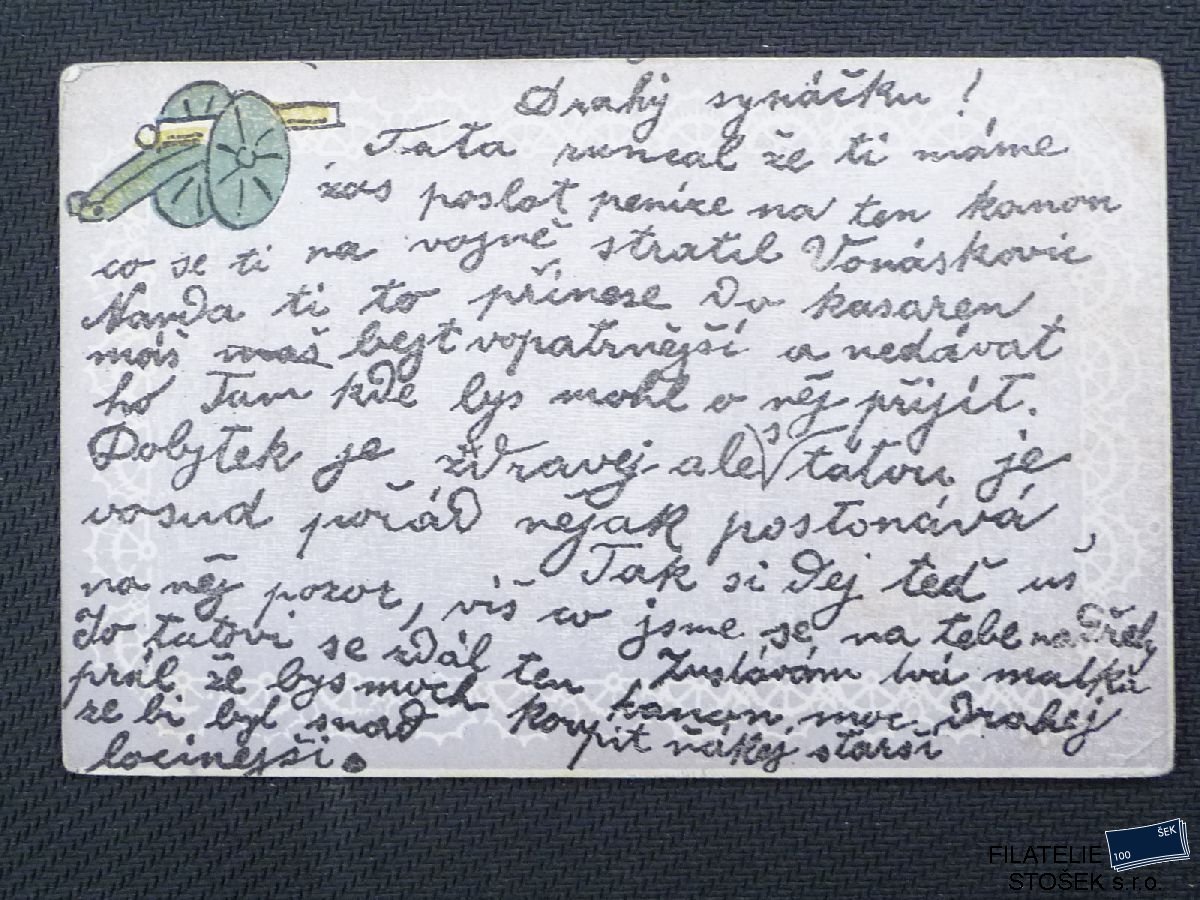 Drahý synáčku!
Táta runcal že ti máme
zas poslat peníze na ten kanon
co se ti na vojně stratil Vonáskovic
Narda ti to přinese do kasaren
máš maš bejt vopatrnější a nedávat
ho Tam kde bys mohl o něj přijít.
Dobytek je zdravej ale s tatou je
vosud pořád nějak postonává,
na něj pozor, viš co jsme se na tebe nadřely
Tak si dej teď uš
To tatovi se zdál ten kanon moc drahej
Zustávám tvá matka
prál že bys moch koupit ňákej starší
ze bi byl snad
locinejší.
FILATELIE
STOŠEK s.r.o.
100 ŠEK